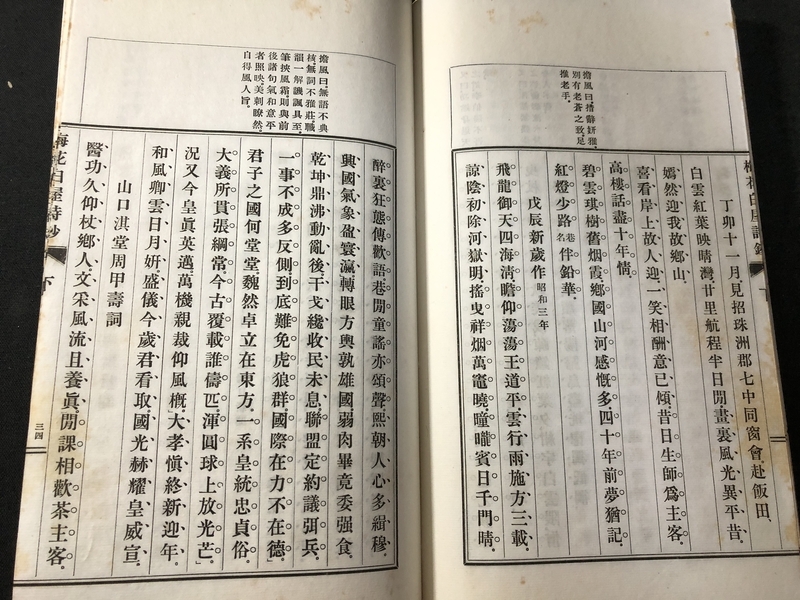 梅花白屋詩鈔
下
擔風曰措辭妍雅
別有老蒼之致足
推老手
丁卯十一月見招珠洲郡七中同窗會赴飯田
白雲紅葉映晴灣廿里航程半日閒畫裏風光異平昔
嫣然迎我故鄉山
喜看岸上故人迎一笑相酬意已傾昔日生師爲主客
高樓話盡十年情
碧雲琪樹舊烟霞鄉國山河感慨多四十年前夢猶記
紅燈少路巷名伴鉛華
戊辰新歲作昭和三年
飛龍御天四海清瞻仰蕩蕩王道平雲行雨施方三載
諒陰初除河嶽明搖曳祥烟萬竈曉曈曨賓日千門晴
擔風曰無語不典
核無詞不雅莊職
韻一解譏諷具至
筆挾風霜則與前
後諸句氣和意平
者照映美刺瞭然
自得風人旨
醉裏狂態傳歡語巷閒童謠亦頌聲熙朝人心多緝穆
興國氣象盈寰瀛轉眼方輿孰雄國弱肉畢竟委强食
乾坤鼎沸動亂後干戈纔收民未息聯盟定約議弭兵
一事不成多反側到底難免虎狼群國際在力不在德
君子之國何堂堂巍然卓立在東方一系皇統忠貞俗
大義所貫張綱常今古覆載誰儔匹渾圓球上放光芒
況又今皇眞英邁萬機親裁仰風概大孝愼終新迎年
和風卿雲日月妍盛儀今歲君看取國光赫耀皇威宣
山口淇堂周甲壽詞
醫功久仰杖鄉人文采風流且養眞閒課相歡茶主客
梅花白屋詩鈔
下
三四